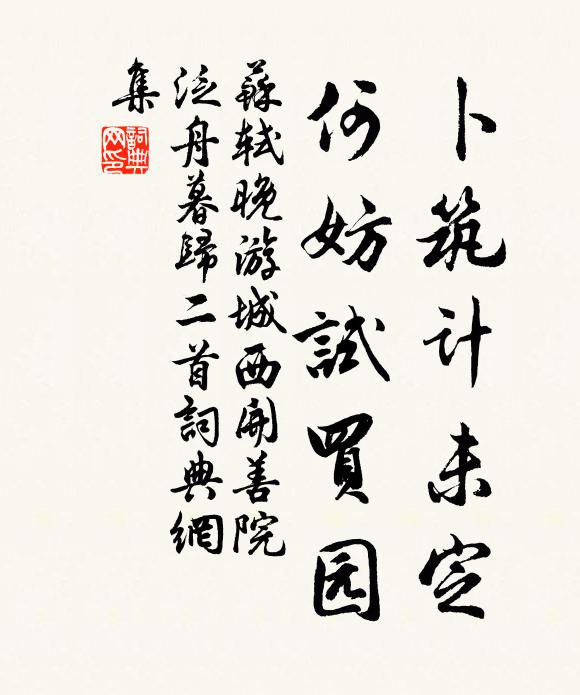 卜筑计未定
何妨試買园
蘇軾晚游城西開善院
泛舟暮歸二首詞典網
集
詞典网印